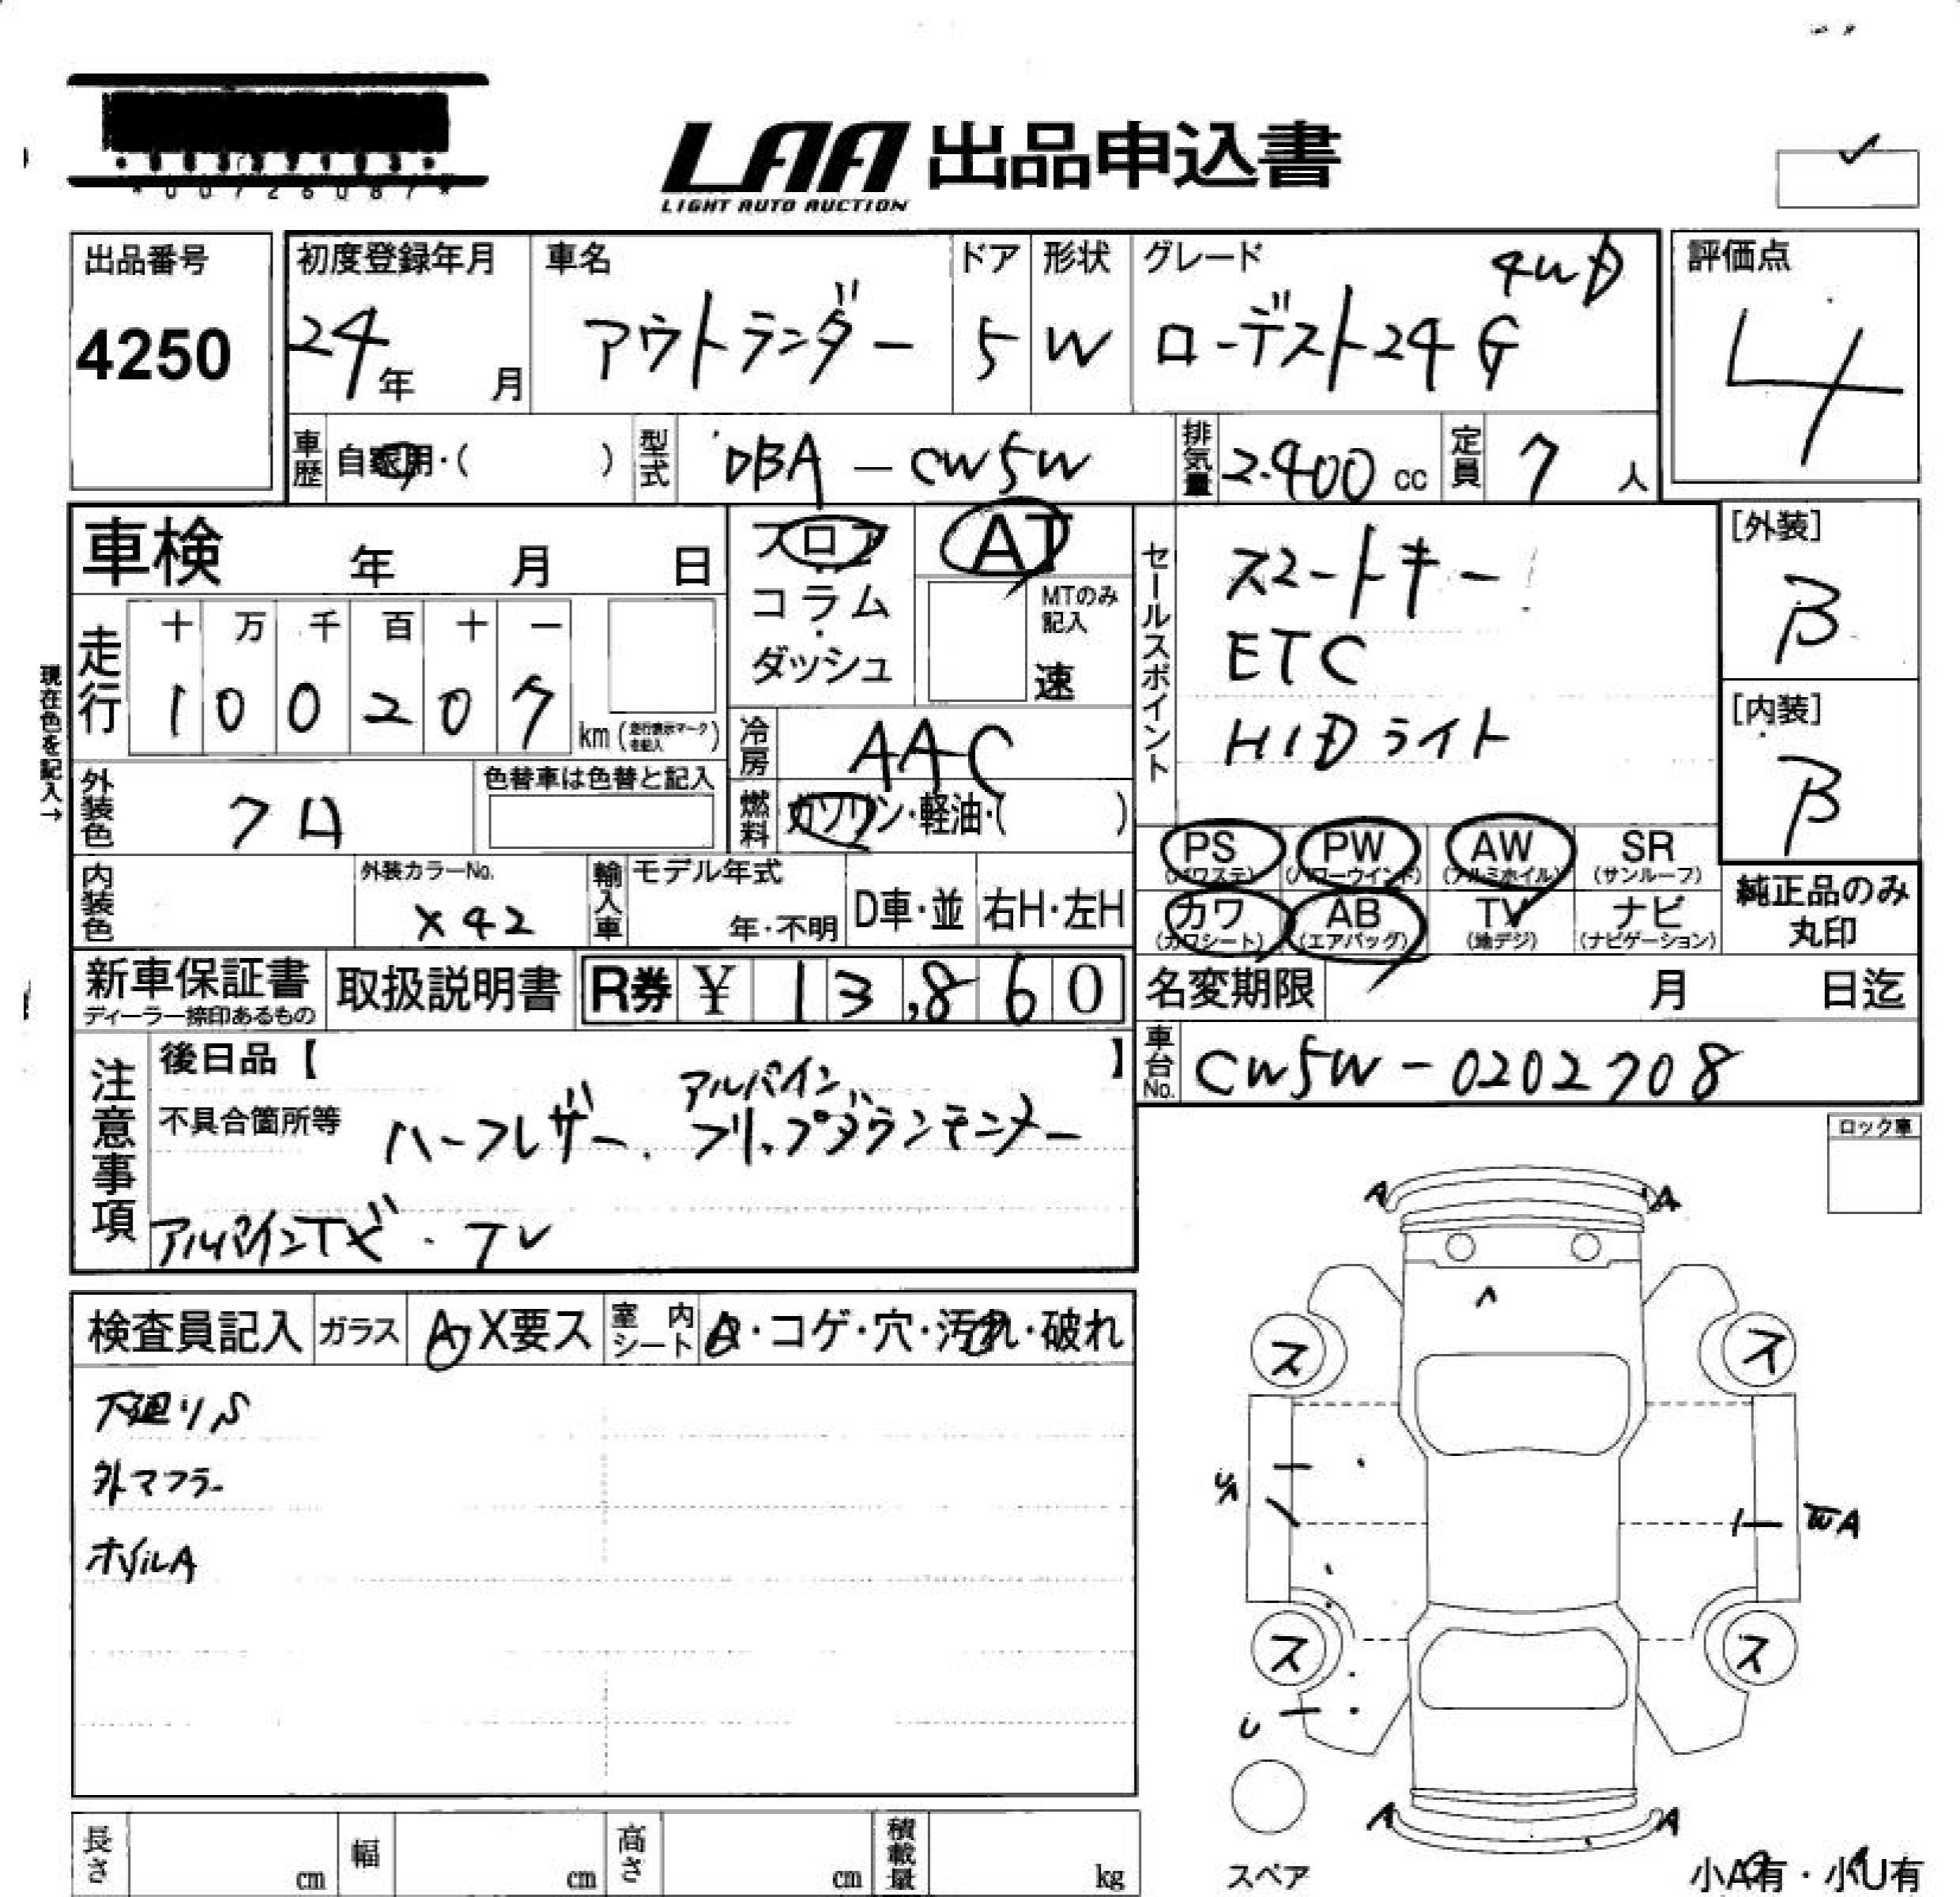 *00726087*
LAA 出品申込書
LIGHT AUTO AUCTION
出品番号 初度登録年月 車名 ドア 形状 グレード 4WD 評価点
4250 24年 月 アウトランダー 5 W ローデスト24G 4
車歴 自家用・( ) 型式 DBA-CW5W 排気量 2.400 cc 定員 7 人
車検 年 月 日 フロア AT セールスポイント スマートキー [外装]
コラム・ MTのみ記入 ETC B
ダッシュ 速 HIDライト [内装]
走行 十 万 千 百 十 一 B
1 0 0 2 0 7 km (走行表示マークを記入) 冷房 AAC
現在色を記入→
外装色 クロ 色替車は色替と記入 燃料 ガソリン・軽油・( )
PS (パワステ) PW (パワーウインド) AW (アルミホイル) SR (サンルーフ)
カワ (カワシート) AB (エアバッグ) TV (地デジ) ナビ (ナビゲーション) 純正品のみ丸印
内装色 外装カラーNo. X42 輸入車 モデル年式 年・不明 D車・並 右H・左H
新車保証書 ディーラー捺印あるもの 取扱説明書 R券 ¥ 13,860 名変期限 月 日迄
車台No. CW5W-0202708
注意事項 後日品【 】
不具合箇所等 ハーフレザー. アルパイン フリップダウンモニター
アルパイン ・TV
ロック車
検査員記入 ガラス A・X要ス 室内シート ・コゲ・穴・汚れ・破れ
下廻りS
外マフラー
ホイルA
A A
ス ス
A
ス ス
U
A A
スペア
小A有・小U有
長さ cm 幅 cm 高さ cm 積載量 kg